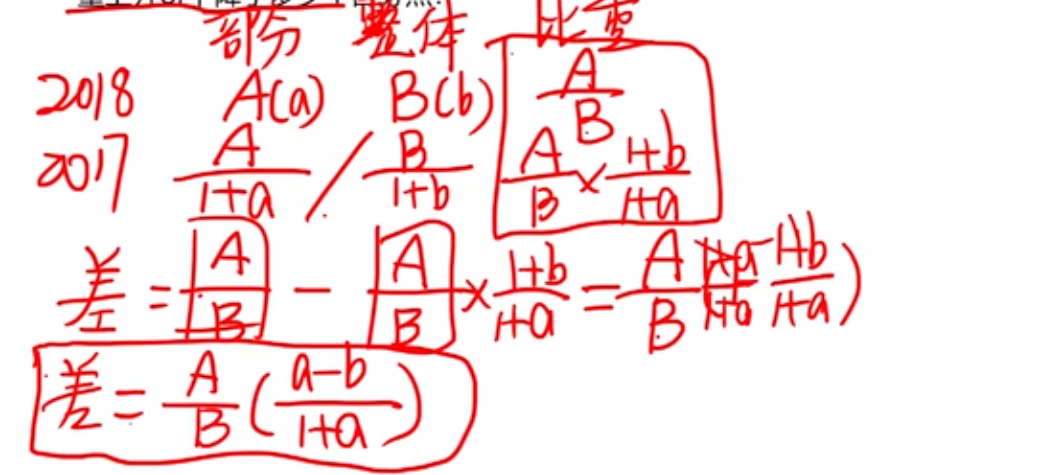 部分 整体 比重
2018 A(a) B(b) A/B
2017 A/(1+a) / B/(1+b) A/B × (1+b)/(1+a)
差 = A/B − A/B × (1+b)/(1+a) = A/B (1+a/1+a − 1+b/1+a)
差 = A/B ( (a−b)/(1+a) )